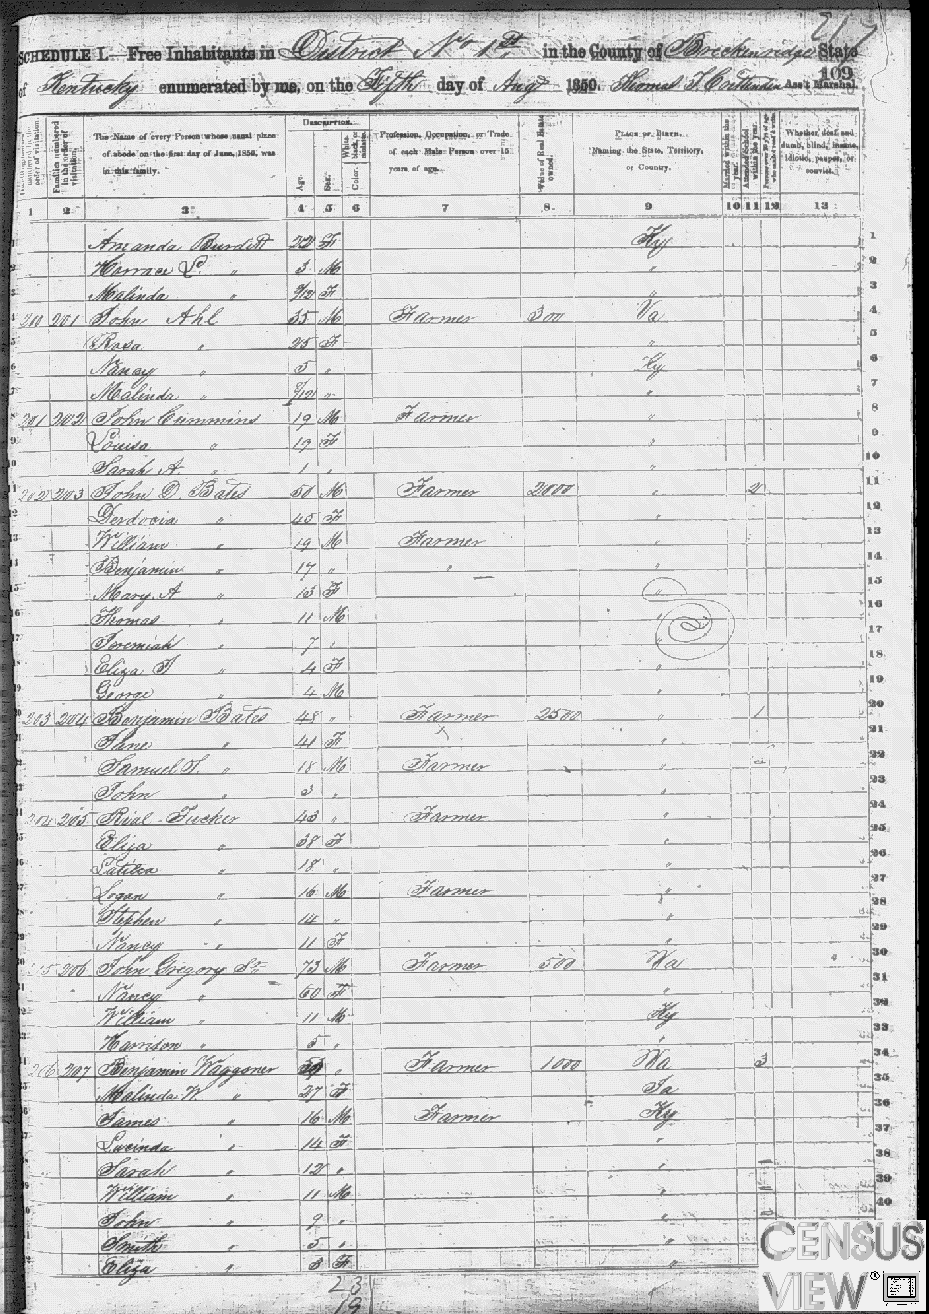 217
SCHEDULE I.—Free Inhabitants in District No 1st in the County of Breckenridge State
109
of Kentucky enumerated by me, on the Fifth day of Augt 1850. Thomas Ass't Marshal.
Dwelling-houses numbered in the order of visitation.
Families numbered in the order of visitation.
The Name of every Person whose usual place of abode on the first day of June, 1850, was in this family.
DESCRIPTION.
Age.
Sex.
Color.
Profession, Occupation, or Trade of each Male Person over 15 years of age.
Value of Real Estate owned.
PLACE OF BIRTH. Naming the State, Territory, or Country.
Married within the year.
Attended School within the year.
Whether deaf and dumb, blind, insane, idiotic, pauper, or convict.
1 2 3 4 5 6 7 8. 9 10 11 12 13
Amanda Burdett 22 F Ky 1
Horrace L. " 3 M " 2
Malinda " /12 F " 3
200 201 John Ahl 35 M Farmer 300 Va 4
Rosa " 25 F " 5
Nancy " 5 " Ky 6
Malinda " /12 " " 7
201 202 John Cummins 19 M Farmer " 8
Louisa " 19 F " 9
Sarah A. " 1 " " 10
202 203 John D. Bates 50 M Farmer 2000 " 2 11
Derdocia " 45 F " 12
William " 19 M Farmer " 13
Benjamin " 17 " " " 14
Mary A " 13 F " 15
Thomas " 11 M " 16
Jeremiah " 7 " " 17
Eliza J " 4 F " 18
George " 4 M " 19
203 204 Benjamin Bates 48 " Farmer 2500 " 1 20
Jane " 41 F " 21
Samuel T. " 18 M Farmer " 22
John " 3 " " 23
204 205 Rial Tucker 43 " Farmer " 24
Eliza " 38 F " 25
" 18 " " 26
Logan " 16 M Farmer " 27
Stephen " 14 " " 28
Nancy " 11 F " 29
205 206 John Gregory Sr 73 M Farmer 500 Va 30
Nancy " 60 F " 31
William " 11 M Ky 32
Harrison " 5 " " 33
206 207 Benjamin Waggoner " Farmer 1000 Va 3 34
Malinda W. " 27 F Ia 35
James " 16 M Farmer Ky 36
Lucinda " 14 F " 37
Sarah " 12 " " 38
William " 11 M " 39
John " 9 " " 40
Smith " 5 "
Eliza " 3 F "
23
19
CENSUS
VIEW®